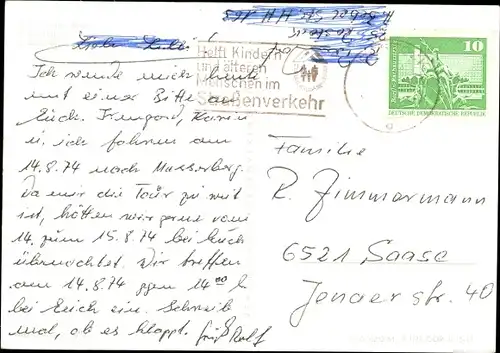 Helft Kindern
und älteren
Menschen im
Straßenverkehr
10
DEUTSCHE DEMOKRATISCHE REPUBLIK
Ich wende mich heute
mit einer Bitte an
Euch. Karin
u. ich fahren am
14.8.74 nach Masserberg.
Da mir die Tour zu weit
ist, hätten wir gerne vom
14. zum 15.8.74 bei Euch
übernachtet. Wir treffen
am 14.8.74 gegen 14 00 h
bei Euch ein. Schreib
mal, ob es klappt. Gruß Rolf
Familie
R. Zimmermann
6521 Saasa
Jenaer Str. 40